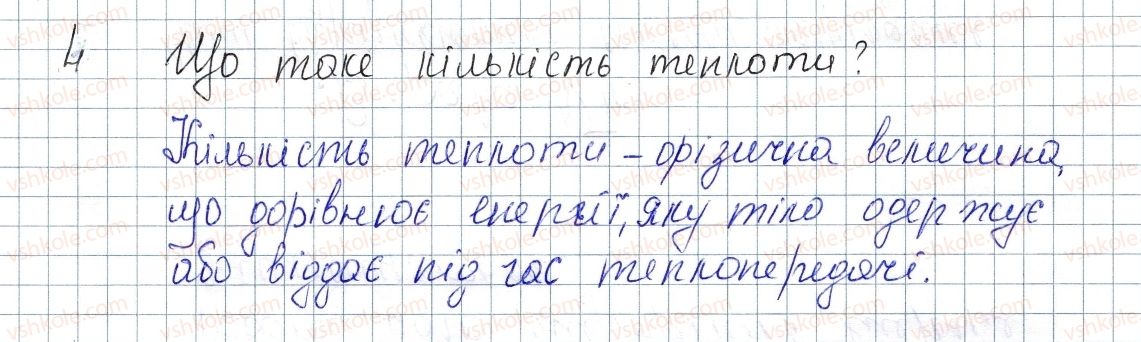 4 Що таке кількість теплоти?
Кількість теплоти – фізична величина,
що дорівнює енергії, яку тіло одержує
або віддає під час теплопередачі.